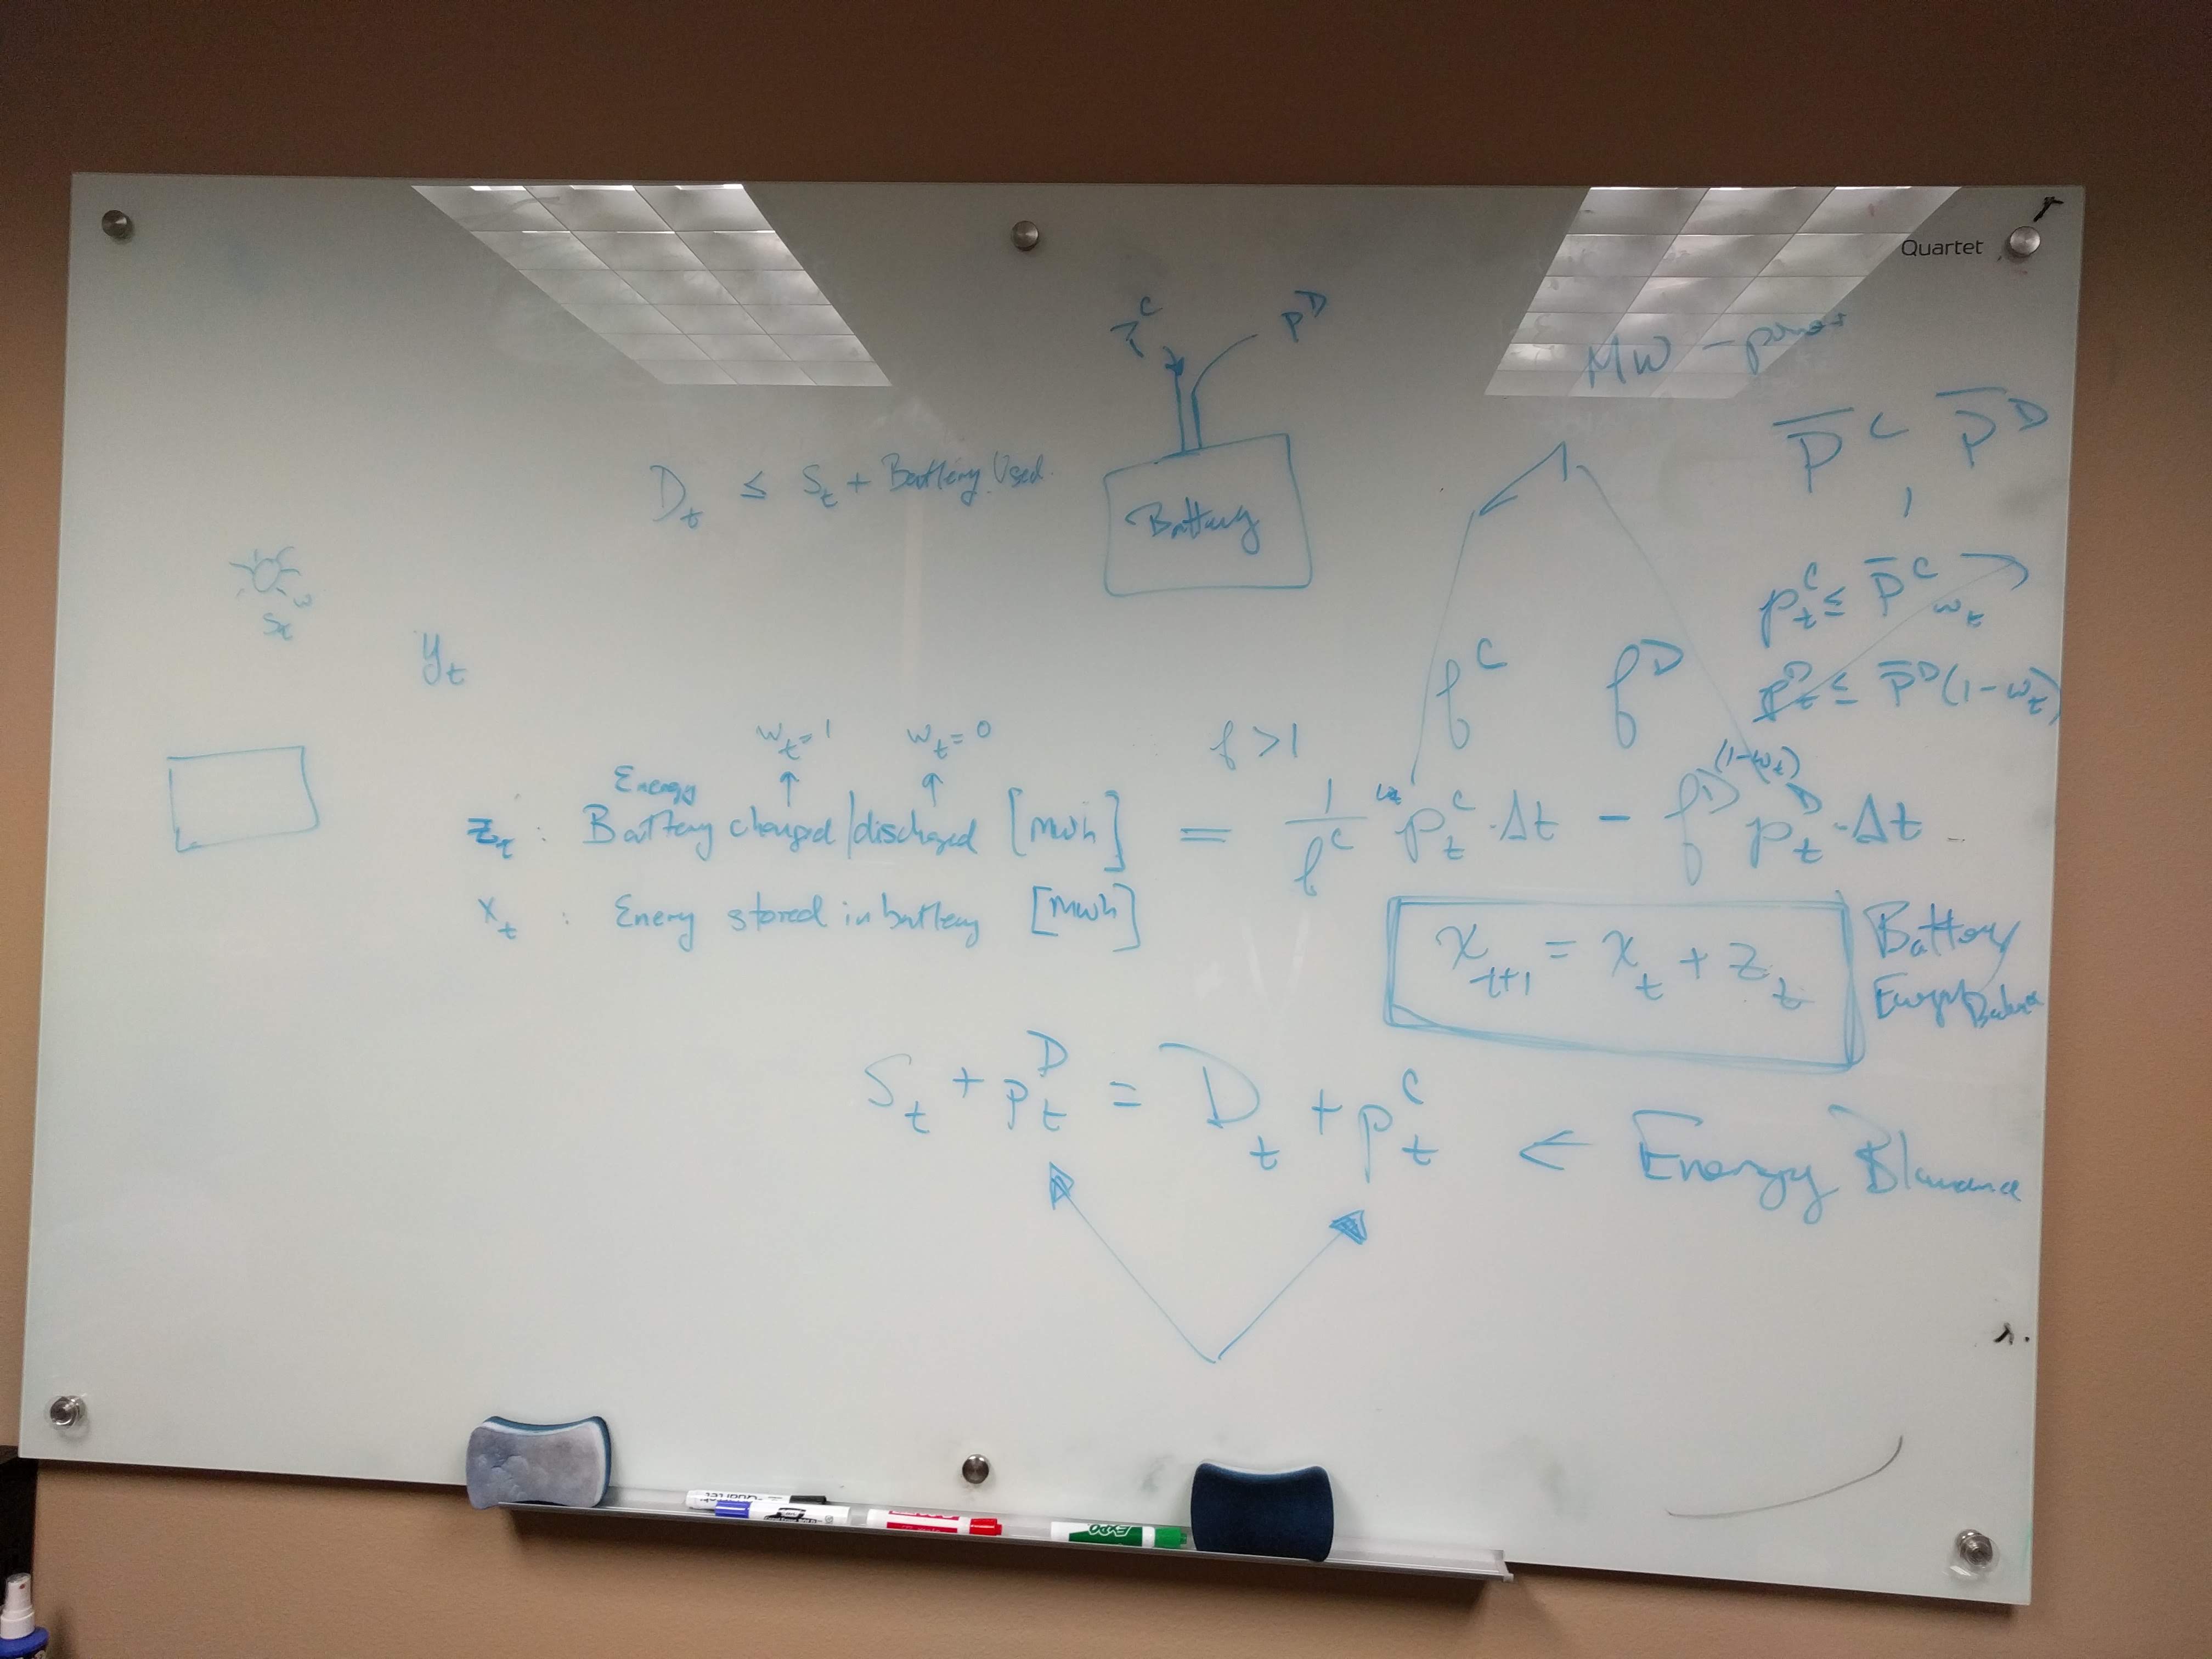 Quartet
MW - power
P^C P^D
\overline{P}^C \overline{P}^D
D_t ≤ S_t + Battery Used
Battery
p_t^C ≤ \overline{P}^C w_t
p_t^D ≤ \overline{P}^D (1-w_t)
S_t
y_t
f^C f^D
w_t=1 w_t=0
f >1
Energy
z_t : Battery charged/discharged [mwh] = \frac{1}{f^C} w_t p_t^C · Δt - f^D (1-w_t) p_t^D · Δt
x_t : Enery stored in battery [mwh]
x_{t+1} = x_t + z_t
Battery
Energy Balance
S_t + p_t^D = D_t + p_t^C ← Energy Blanance
EXPO